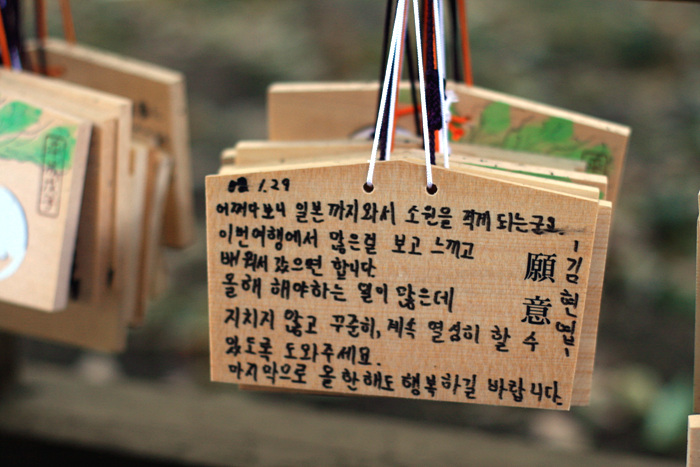 08 1.29
어쩌다보니 일본까지와서 소원을 적게 되는군요.
이번여행에서 많은걸 보고 느끼고
배워서 갔으면 합니다
올해 해야하는 일이 많은데
지치지 않고 꾸준히, 계속 열심히 할 수
있도록 도와주세요.
마지막으로 올 한해도 행복하길 바랍니다.
願意
-김현엽-